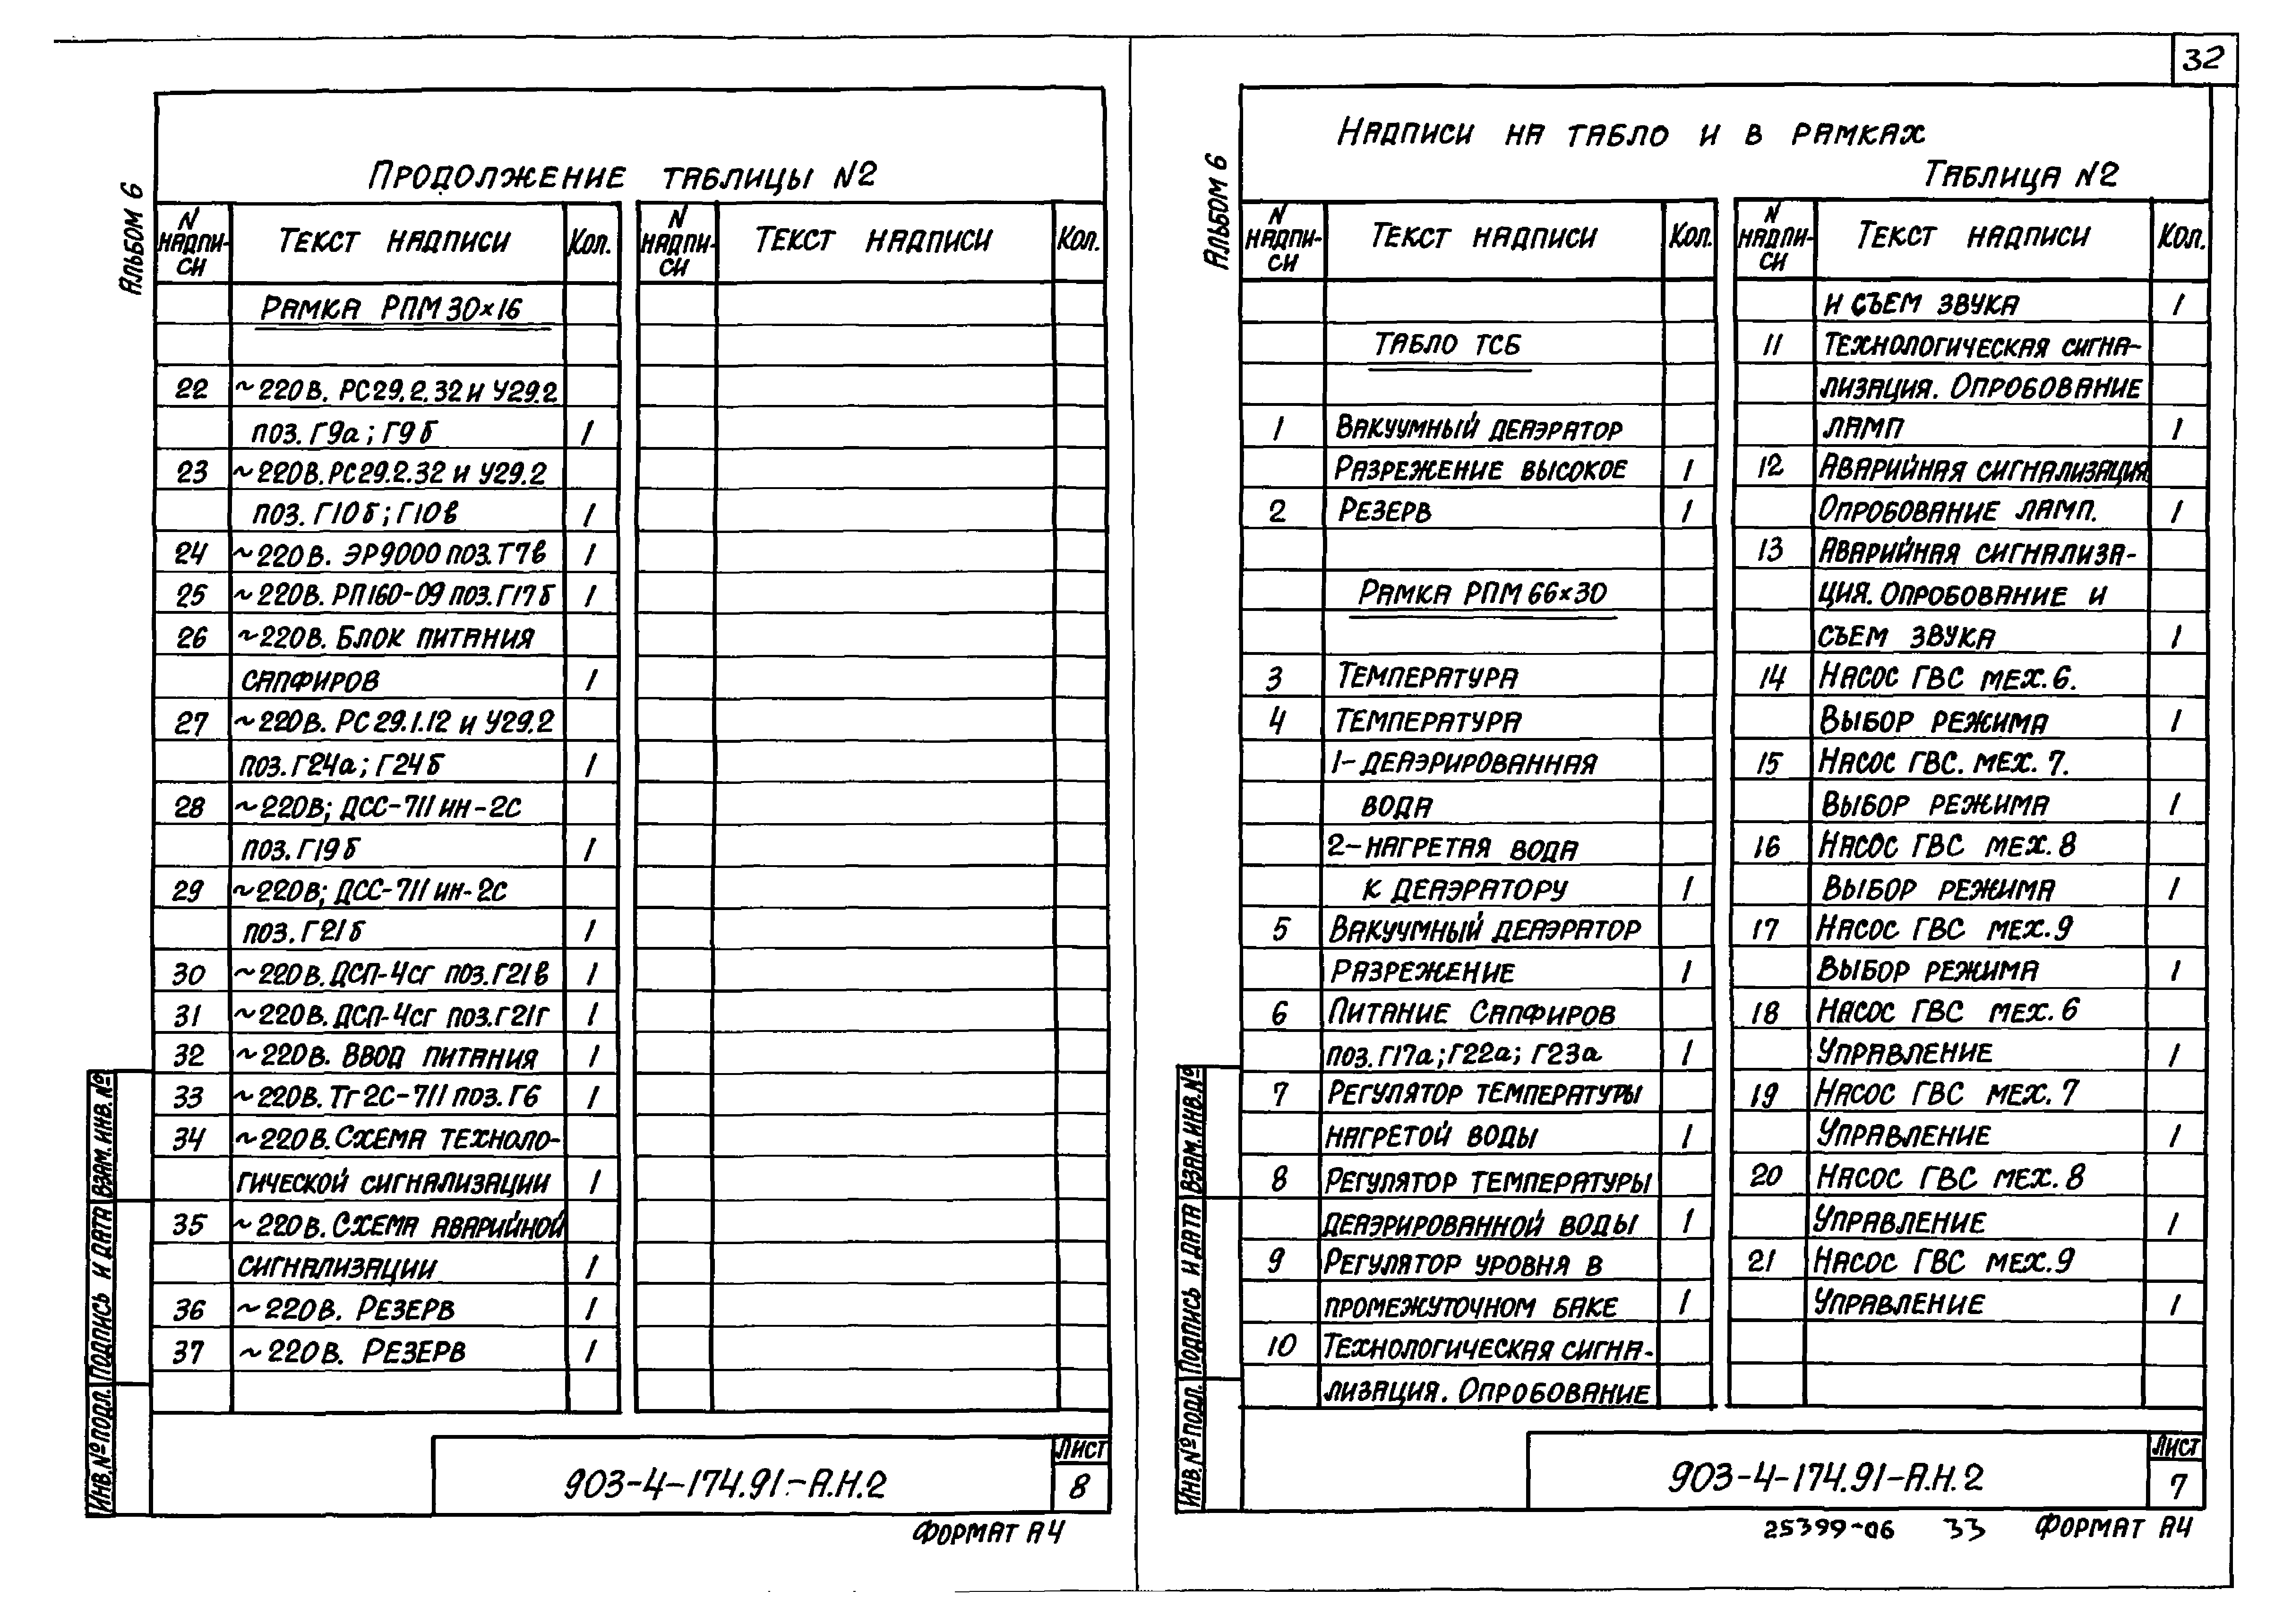 32
Альбом 6
Продолжение таблицы N2
N надпи-си Текст надписи Кол. N надпи-си Текст надписи Кол.
Рамка РПМ 30×16
22 ~220В. РС29.2.32 и У29.2
поз. Г9а; Г9б 1
23 ~220В. РС29.2.32 и У29.2
поз. Г10б; Г10в 1
24 ~220В. ЭР9000 поз. Т7в 1
25 ~220В. РП160-09 поз. Г17б 1
26 ~220В. Блок питания
сапфиров 1
27 ~220В. РС29.1.12 и У29.2
поз. Г24а; Г24б 1
28 ~220В; ДСС-711 ин-2С
поз. Г19б 1
29 ~220В; ДСС-711 ин-2С
поз. Г21б 1
30 ~220В. ДСП-4сг поз. Г21в 1
31 ~220В. ДСП-4сг поз. Г21г 1
32 ~220В. Ввод питания 1
33 ~220В. Тг2С-711 поз. Г6 1
34 ~220В. Схема техноло-
гической сигнализации 1
35 ~220В. Схема аварийной
сигнализации 1
36 ~220В. Резерв 1
37 ~220В. Резерв 1
Инв. № подл. Подпись и дата Взам. инв. №
903-4-174.91-А.Н.2
Лист
8
Формат А4
Альбом 6
Надписи на табло и в рамках
Таблица N2
N надпи-си Текст надписи Кол. N надпи-си Текст надписи Кол.
Табло ТСБ
1 Вакуумный деаэратор
Разрежение высокое 1
2 Резерв 1
Рамка РПМ 66×30
3 Температура
4 Температура
1-деаэрированная
вода
2-нагретая вода
к деаэратору 1
5 Вакуумный деаэратор
Разрежение 1
6 Питание Сапфиров
поз. Г17а; Г22а; Г23а 1
7 Регулятор температуры
нагретой воды 1
8 Регулятор температуры
деаэрированной воды 1
9 Регулятор уровня в
промежуточном баке 1
10 Технологическая сигна-
лизация. Опробование
и съем звука 1
11 Технологическая сигна-
лизация. Опробование
ламп 1
12 Аварийная сигнализация
Опробование ламп. 1
13 Аварийная сигнализа-
ция. Опробование и
съем звука 1
14 Насос ГВС мех. 6.
Выбор режима 1
15 Насос ГВС. мех. 7.
Выбор режима 1
16 Насос ГВС мех. 8
Выбор режима 1
17 Насос ГВС мех. 9
Выбор режима 1
18 Насос ГВС мех. 6
Управление 1
19 Насос ГВС мех. 7
Управление 1
20 Насос ГВС мех. 8
Управление 1
21 Насос ГВС мех. 9
Управление 1
Инв. № подл. Подпись и дата Взам. инв. №
903-4-174.91-А.Н.2
Лист
7
25399-06 33 Формат А4